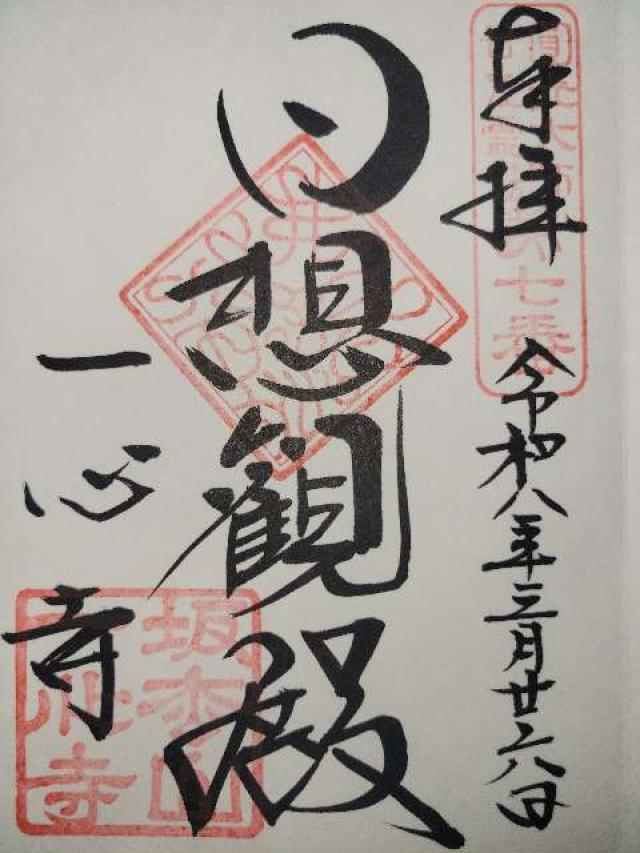 奉拝
七番
令和八年三月廿六日
日想觀殿
一心寺
坂松山
一心寺